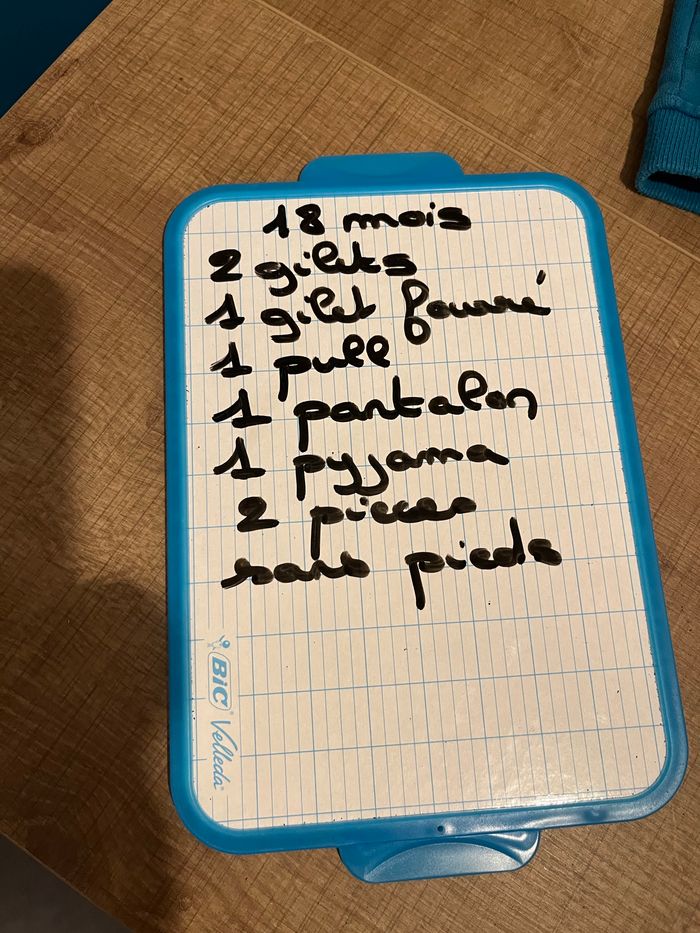 18 mois
2 gilets
1 gilet fourré
1 pull
1 pantalon
1 pyjama
2 pieces
sans pieds
BiC Velleda